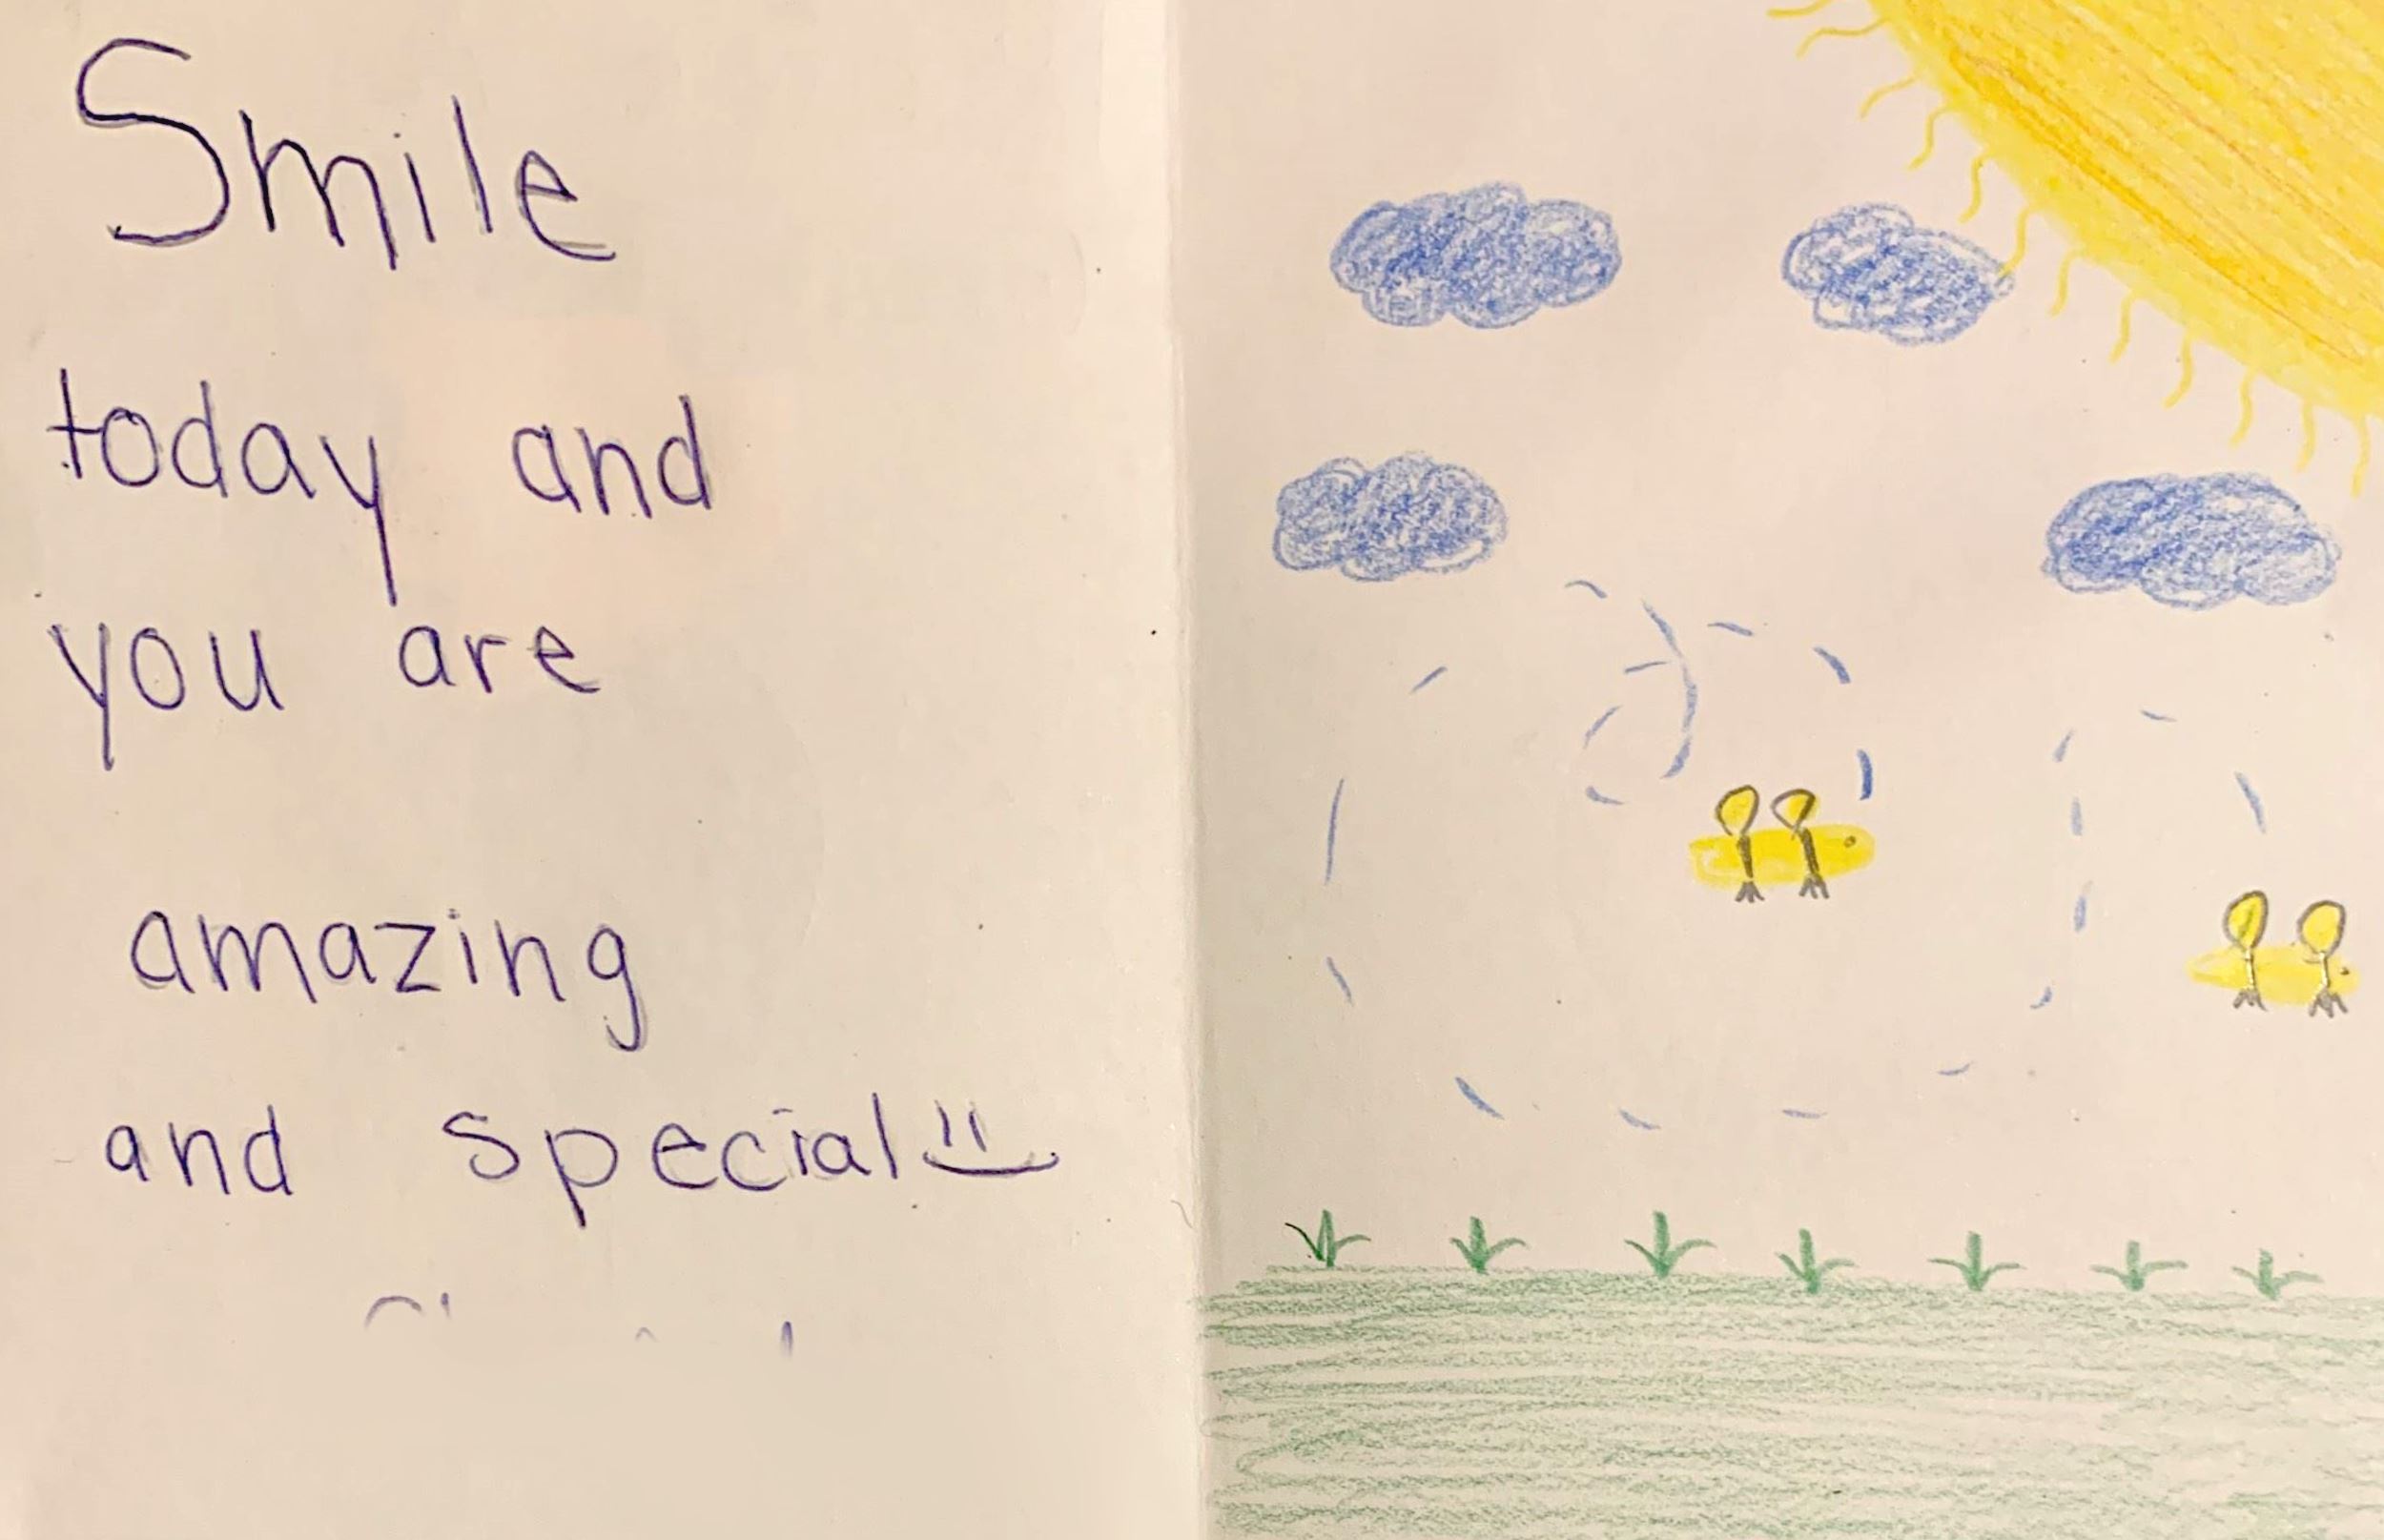 Smile
today and
you are
amazing
and special